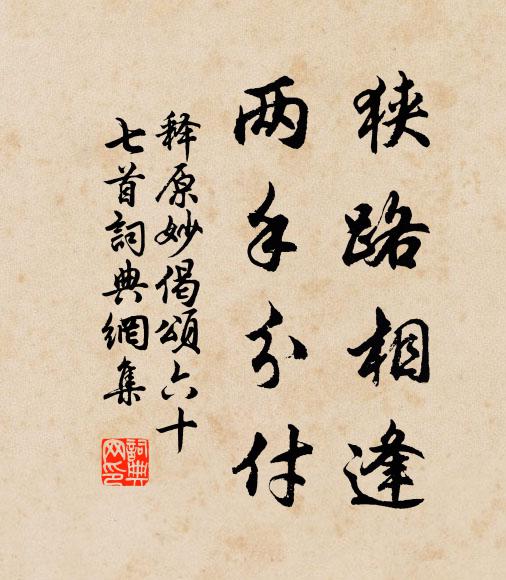 狭路相逢
两手分付
释原妙偈颂六十
七首詞典網集
詞典网印